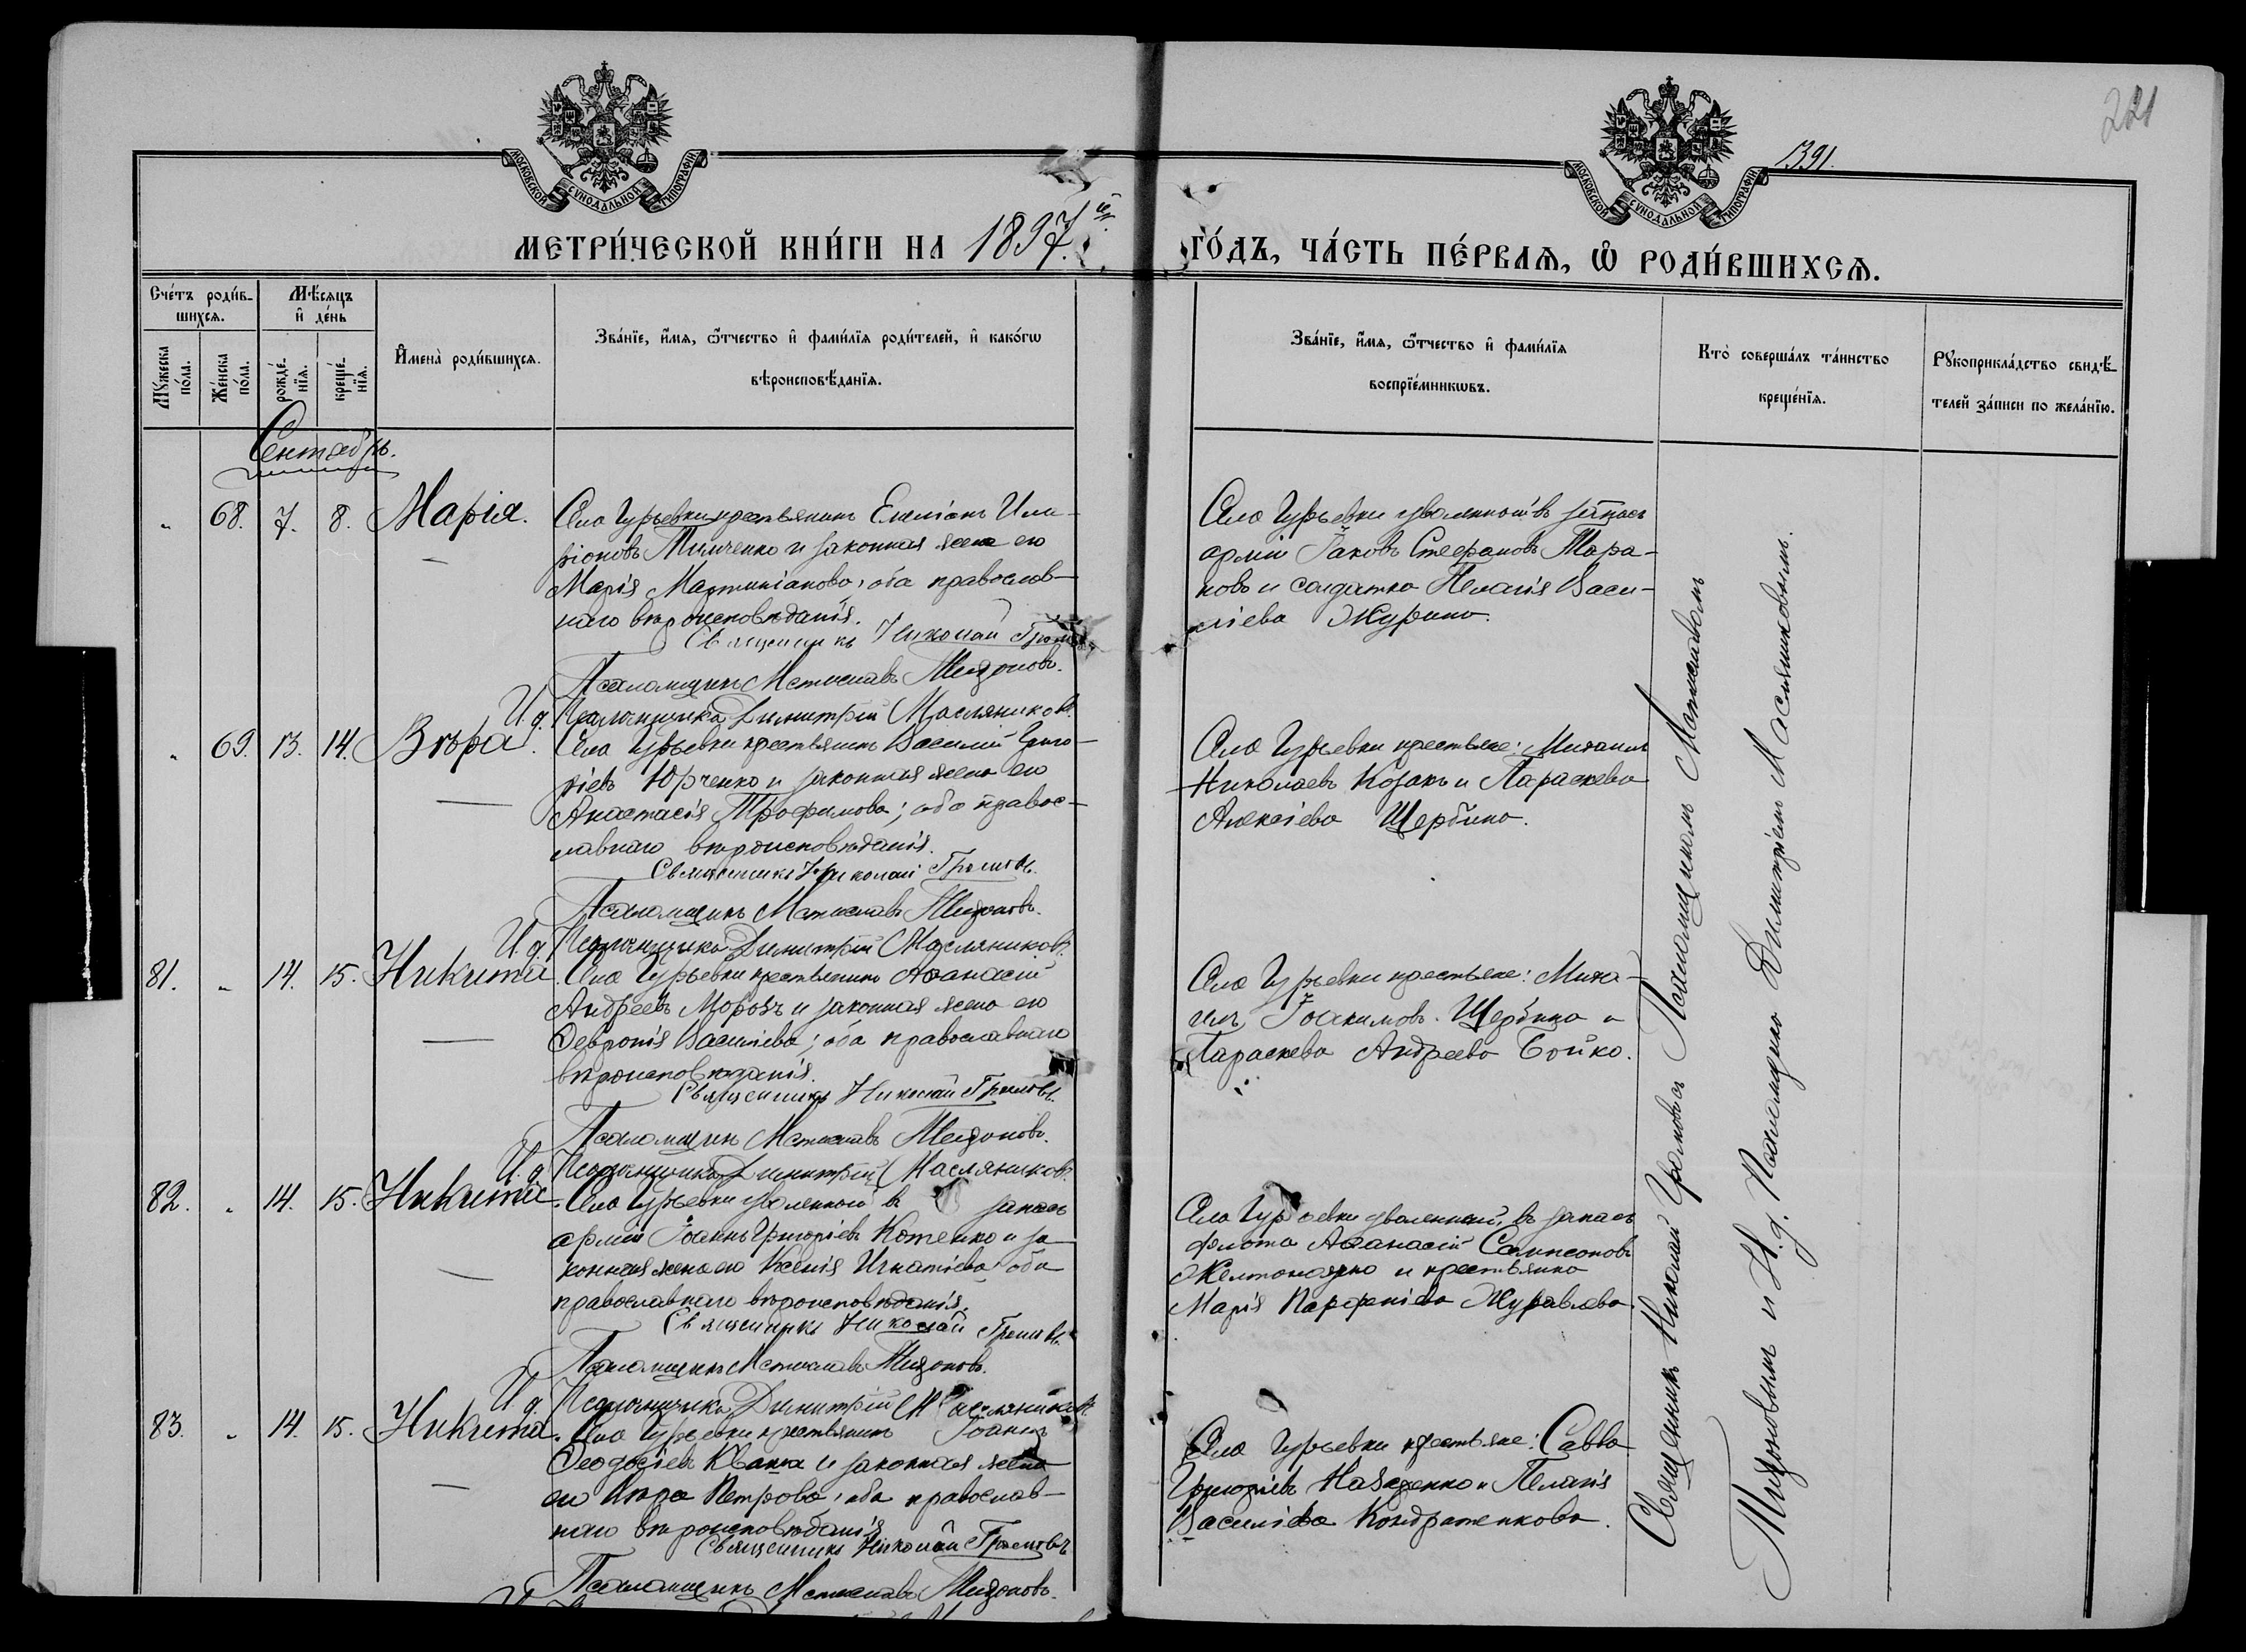 221
391.
МОСКОВСКОЙ СУНОДАЛЬНОЙ ТИПОГРАФІИ
МОСКОВСКОЙ СУНОДАЛЬНОЙ ТИПОГРАФІИ
МЕТРИ́ЧЕСКОЙ КНИ́ГИ НА 1897.й
ГО́ДЪ, ЧА́СТЬ ПЕ́РВАѦ, Ѡ҆ РОДИ́ВШИХСѦ.
Сче́тъ роди́в-
шихсѧ.
Мѣ́сѧцъ
и҆ де́нь
Мꙋ́жеска
по́ла.
Же́нска
по́ла.
рожде́-
нїѧ.
креще́-
нїѧ.
И҆мена̀ роди́вшихсѧ.
Зва́нїе, и҆́мѧ, ѻ҆́тчество и҆ фами́лїѧ роди́телей, и҆ како́гѡ
вѣроисповѣ́данїѧ.
Зва́нїе, и҆́мѧ, ѻ҆́тчество и҆ фами́лїѧ
воспрїе́мникѡвъ.
Кто̀ соверша́лъ та́инство
креще́нїѧ.
Рꙋкоприкла́дство свидѣ́-
телей за́писи по жела́нїю.
Сентябрь.
" 68. 7. 8. Марія.
Села Гурьевки крестьянинъ Емиліанъ Ила-
ріоновъ Тимченко и законная жена его
Марія Мартиніанова, оба православ-
наго вѣроисповѣданія.
Священникъ Николай Громовъ
Псаломщикъ Мстиславъ
И. д. Псаломщика Димитрій Масляниковъ.
Села Гурьевки уволенный въ запасъ
арміи Іаковъ Стефановъ Тара-
новъ и солдатка Пелагія Васи-
ліева Журина.
" 69. 13. 14. Вѣра.
Села Гурьевки крестьянинъ Василій Григо-
ріевъ Юрченко и законная жена его
Анастасія Трофимова; оба правос-
лавнаго вѣроисповѣданія.
Священникъ Николай Громовъ.
Псаломщикъ Мстиславъ
И. д. Псаломщика Димитрій Масляниковъ.
Села Гурьевки крестьяне: Михаилъ
Николаевъ Козакъ и Параскева
Алексіева Щербина.
81. " 14. 15. Никита.
Села Гурьевки крестьянинъ Аѳанасій
Андреевъ Морозъ и законная жена его
Февронія Василіева; оба православнаго
вѣроисповѣданія.
Священникъ Николай Громовъ.
Псаломщикъ Мстиславъ
И. д. Псаломщика Димитрій Масляниковъ.
Села Гурьевки крестьяне: Миха-
илъ Іоакимовъ Щербина и
Параскева Андреева Бойко.
82. " 14. 15. Никита.
Села Гурьевки уволенный въ запасъ
арміи Іоаннъ Григоріевъ Котенко и за-
конная жена его Ксенія Игнатіева оба
православнаго вѣроисповѣданія.
Священникъ Николай Громовъ.
Псаломщикъ Мстиславъ
И. д. Псаломщика Димитрій Масляниковъ.
Села Гурьевки уволенный въ запасъ
флота Аѳанасій Сампсоновъ
и крестьянка
Марія Парѳеніева Журавлева.
83. " 14. 15. Никита.
Села Гурьевки крестьянинъ Іоаннъ
Ѳеодосіевъ Кваша и законная жена
его Вѣра Петрова, оба православ-
наго вѣроисповѣданія
Священникъ Николай Громовъ
Псаломщикъ Мстиславъ
Села Гурьевки крестьяне: Савва
Григоріевъ и Пелагія
Василіева Кондратенкова.
Священникъ Николай Громовъ съ Псаломщикомъ Мстиславомъ
и И. д. Псаломщика Димитріемъ Масляниковымъ.